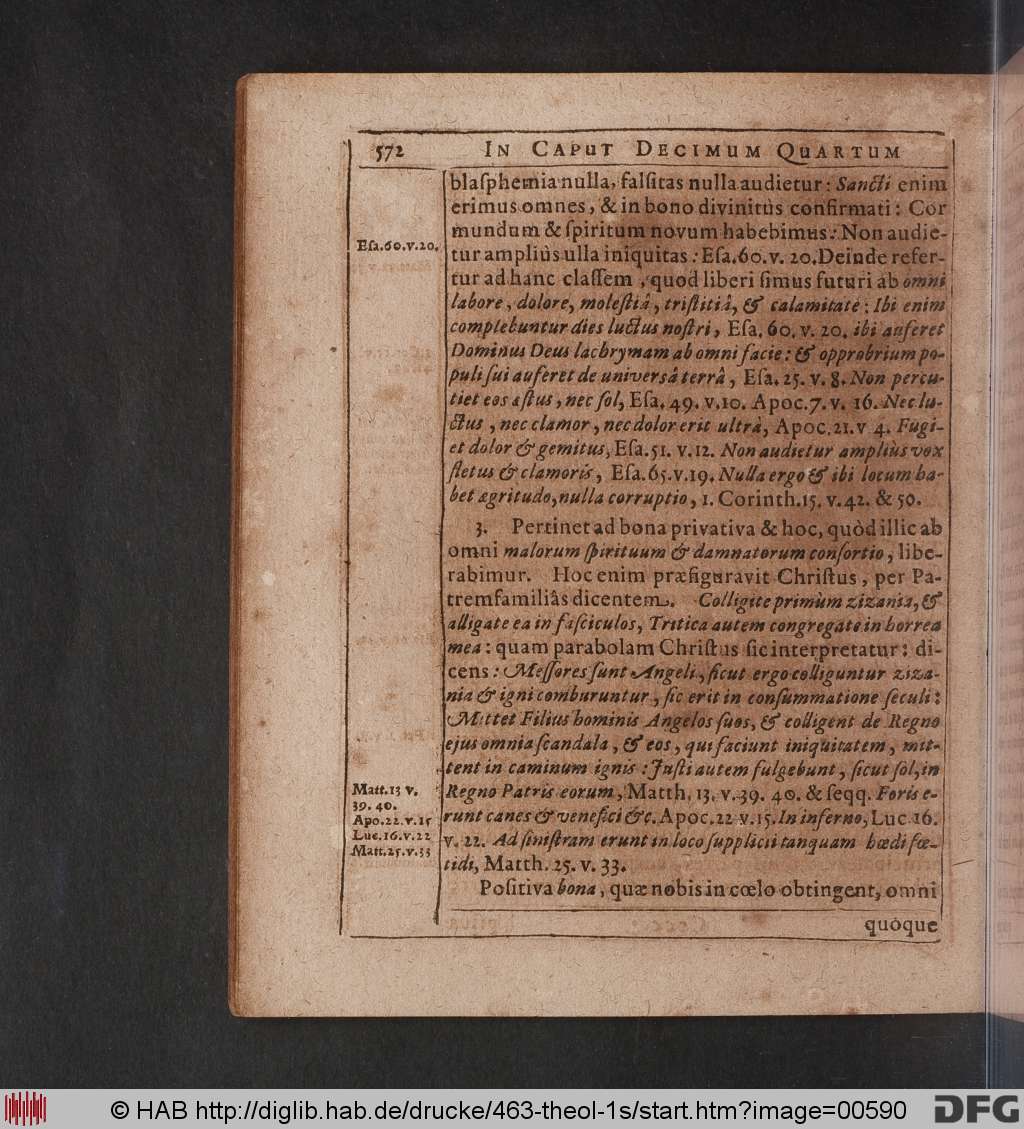 572 IN CAPUT DECIMUM QUARTUM
blaſphemia nulla, falſitas nulla audietur: Sancti enim
erimus omnes, & in bono divinitùs confirmati: Cor
mundum & ſpiritum novum habebimus: Non audie-
Eſa.60.v.20.
tur ampliùs ulla iniquitas: Eſa.60.v. 20. Deinde refer-
tur ad hanc claſſem, quod liberi ſimus futuri ab omni
labore, dolore, moleſtiâ, triſtitiâ, & calamitate: Ibi enim
complebuntur dies luctus noſtri, Eſa. 60. v. 20. ibi auferet
Dominus Deus lachrymam ab omni facie: & opprobrium po-
puli ſui auferet de universâ terrâ, Eſa. 25. v. 8. Non percu-
tiet eos æſtus, nec ſol, Eſa. 49. v.10. Apoc.7. v. 16. Nec lu-
ctus, nec clamor, nec dolor erit ultrà, Apoc. 21. v 4. Fugi-
et dolor & gemitus, Eſa.51. v.12. Non audietur ampliùs vox
fletus & clamoris, Eſa. 65. v.19. Nulla ergo & ibi locum ha-
bet ægritudo, nulla corruptio, 1. Corinth.15. v.42. & 50.
3. Pertinet ad bona privativa & hoc, quòd illic ab
omni malorum ſpirituum & damnatorum conſortio, libe-
rabimur. Hoc enim præfiguravit Chriſtus, per Pa-
tremfamiliâs dicentem. Colligite primùm zizania, &
alligate ea in faſciculos, Tritica autem congregate in horrea
mea: quam parabolam Chriſtus ſic interpretatur: di-
cens: Meſſores ſunt Angeli, ſicut ergo colliguntur ziza-
nia & igni comburuntur, ſic erit in conſummatione ſeculi:
Mittet Filius hominis Angelos ſuos, & colligent de Regno
ejus omnia ſcandala, & eos, qui faciunt iniquitatem, mit-
tent in caminum ignis: Juſti autem fulgebunt, ſicut ſol, in
Matt.13 v.
39. 40.
Apo.22.v.15
Luc.16.v.22
Matt.25.v.33
Regno Patris eorum, Matth. 13. v.39. 40. & ſeqq. Foris e-
runt canes & venefici &c. Apoc.22 v.15. In inferno, Luc 16.
v. 22. Ad ſiniſtram erunt in loco ſupplicii tanquam hœdi fœ-
tidi, Matth. 25. v. 33.
Poſitiva bona, quæ nobis in cœlo obtingent, omni
quòque
© HAB http://diglib.hab.de/drucke/463-theol-1s/start.htm?image=00590
DFG